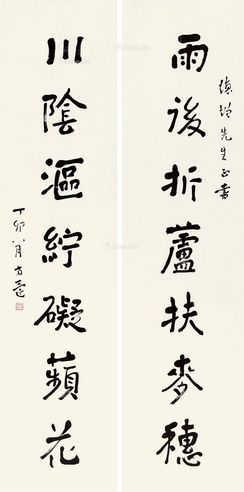 先生正書
雨後折蘆扶麥穗
川陰漚紵礙蘋花
丁卯八月方